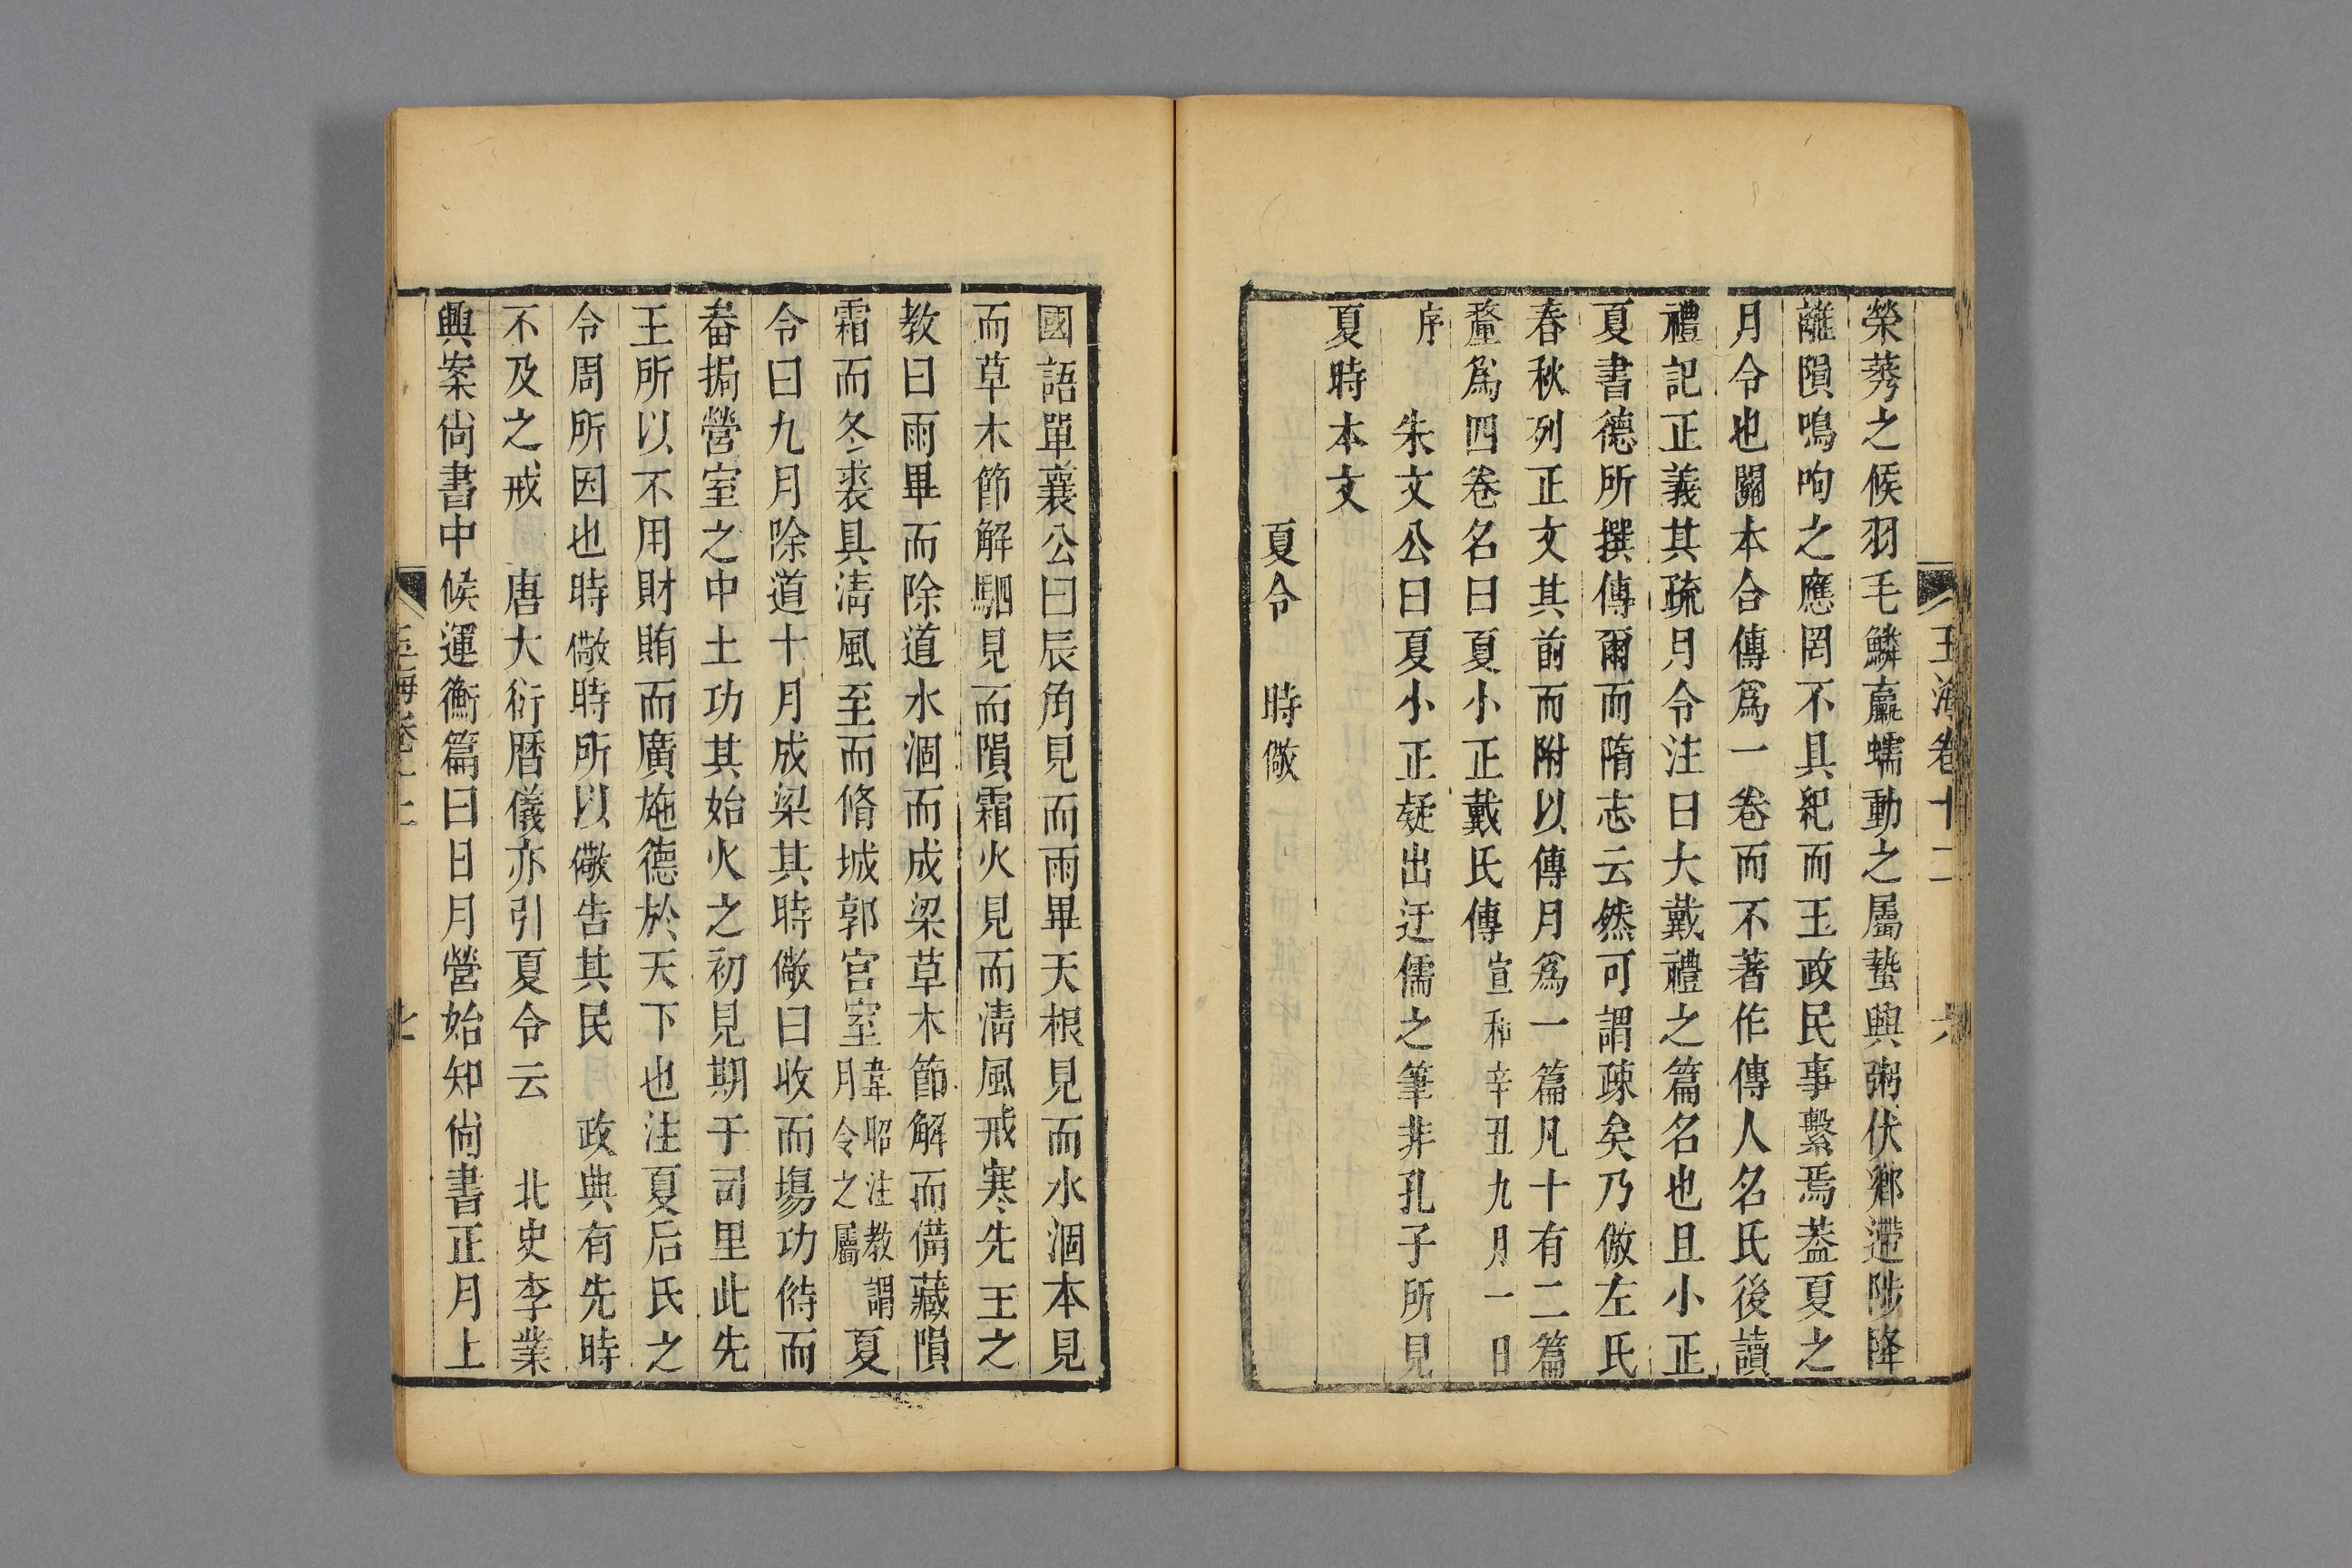 玉海卷十二 六
榮莠之候羽毛鱗蠃蠕動之屬蟄興粥伏鄉遰陟降
離隕鳴呴之應罔不具紀而王政民事繫焉葢夏之
月令也關本合傳爲一卷而不著作傳人名氏後讀
禮記正義其疏月令注曰大戴禮之篇名也且小正
夏書德所撰傳爾而隋志云然可謂疎矣乃倣左氏
春秋列正文其前而附以傳月爲一篇凡十有二篇
釐爲四卷名曰夏小正戴氏傳宣和辛丑九月一日
序 朱文公曰夏小正疑出迂儒之筆非孔子所見
夏時本文
夏令 時儆
國語單襄公曰辰角見而雨畢天根見而水涸本見
而草木節解駟見而隕霜火見而淸風戒寒先王之
教曰雨畢而除道水涸而成梁草木節解而備藏隕
霜而冬裘具淸風至而脩城郭宮室韋昭注教謂月令之屬夏
令曰九月除道十月成梁其時儆曰收而塲功偫而
畚挶營室之中土功其始火之初見期于司里此先
王所以不用財賄而廣施德於天下也注夏后氏之
令周所因也時儆時所以儆告其民 政典有先時
不及之戒 唐大衍曆儀亦引夏令云 北史李業
興案尙書中候運衡篇曰日月營始知尙書正月上